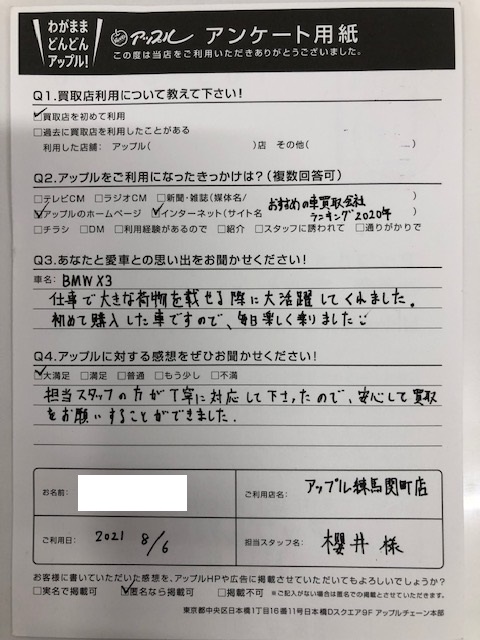 わがまま
どんどん
アップル!
アップル アンケート用紙
この度は当店をご利用いただきありがとうございました。
Q1.買取店利用について教えて下さい!
☑買取店を初めて利用
□過去に買取店を利用したことがある
利用した店舗: アップル( )店 その他( )
Q2.アップルをご利用になったきっかけは?(複数回答可)
□テレビCM □ラジオCM □新聞・雑誌(媒体名/ )
☑アップルのホームページ ☑インターネット(サイト名 おすすめの車買取会社
ランキング2020年 )
□チラシ □DM □利用経験があるので □紹介 □スタッフに誘われて □通りがかりで
Q3.あなたと愛車との思い出をお聞かせください!
車名: BMW X3
仕事で大きな荷物を載せる際に大活躍してくれました。
初めて購入した車ですので、毎日楽しく乗りました
Q4.アップルに対する感想をぜひお聞かせください!
☑大満足 □満足 □普通 □もう少し □不満
担当スタッフの方が丁寧に対応して下さったので、安心して買取
をお願いすることができました.
お名前:
ご利用店名: アップル練馬関町店
ご利用日: 2021 8/6
担当スタッフ名: 櫻井 様
お客様に書いていただいた感想を、アップルHPや広告に掲載させていただいてもよろしいでしょうか?
□実名で掲載可 ☑匿名なら掲載可 □掲載不可 ※ご記入がない場合は匿名での掲載とさせていただきます。
東京都中央区日本橋1丁目16番11号日本橋Dスクエア9F アップルチェーン本部